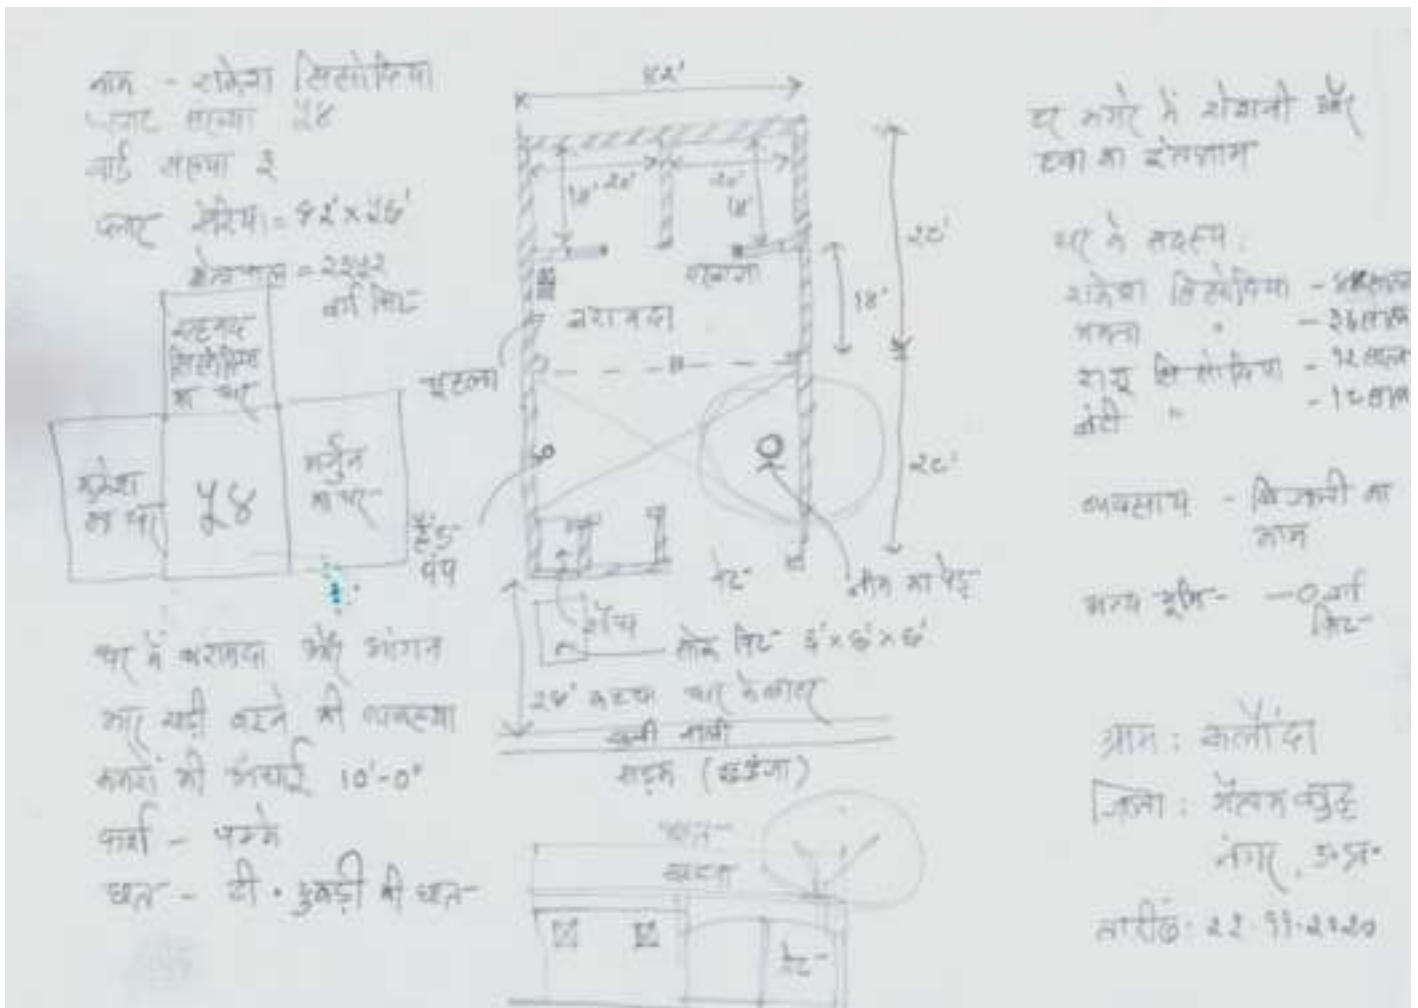 नाम - राकेश सिसोदिया
प्लाट संख्या ५४
वार्ड संख्या ३
प्लाट एरिया = ४२' × ५६'
क्षेत्रफल = २३५२
वर्ग फिट
का घर
का घर
५४
अर्जुन
का घर
घर में बरामदा और आंगन
कार खड़ी करने की व्यवस्था
कमरों की ऊंचाई 10'-0"
फर्श - पक्के
छत - टी. टुकड़ी की छत
४२'
२०'
२०'
1४'
1४'
बरामदा
हैंड
पंप
२८'
1४'
२८'
गेट
नीम का पेड़
शौच
सोक पिट ६' × ६' × ६'
२४' कच्चा घर के बाहर
खुली नाली
सड़क (खड़ंजा)
छत
गेट
हर कमरे में रोशनी और
हवा का इंतजाम
घर के सदस्य :
राकेश सिसोदिया
ममता " - ३६ साल
सिसोदिया - १२ साल
बंटी " - 1० साल
व्यवसाय - बिजली का
काम
अन्य भूमि - - 0 वर्ग
फिट
ग्राम : कलौंदा
जिला : गौतम बुद्ध
नगर, उ॰प्र॰
तारीख - २२.११.२०२०